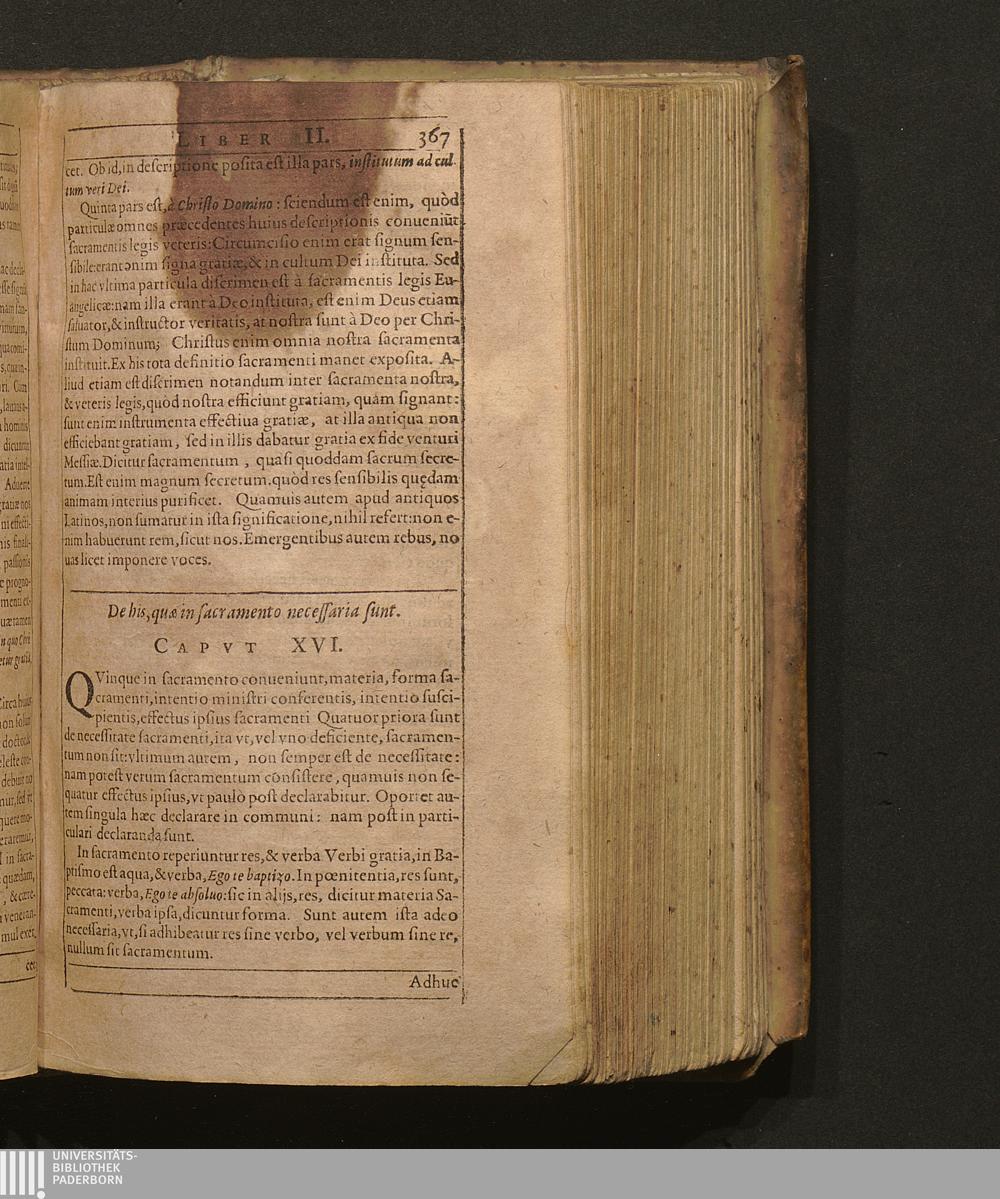 LIBER II. 367
cet. Ob id, in descriptione posita est illa pars, institutum ad cul-
tum veri Dei.
Quinta pars est, à Christo Domino: sciendum est enim, quòd
particulæ omnes præcedentes huius descriptionis conueniūt
sacramentis legis veteris: Circumcisio enim erat signum sen-
sibile: erant enim signa gratiæ, & in cultum Dei instituta. Sed
in hac vltima particula discrimen est à sacramentis legis Eu-
angelicæ: nam illa erant à Deo instituta, est enim Deus etiam
saluator, & instructor veritatis, at nostra sunt à Deo per Chri-
stum Dominum; Christus enim omnia nostra sacramenta
instituit. Ex his tota definitio sacramenti manet exposita. A-
liud etiam est discrimen notandum inter sacramenta nostra,
& veteris legis, quòd nostra efficiunt gratiam, quam signant:
sunt enim instrumenta effectiua gratiæ, at illa antiqua non
efficiebant gratiam, sed in illis dabatur gratia ex fide venturi
Messiæ. Dicitur sacramentum, quasi quoddam sacrum secre-
tum. Est enim magnum secretum. quòd res sensibilis quędam
animam interius purificet. Quamuis autem apud antiquos
Latinos, non sumatur in ista significatione, nihil refert: non e-
nim habuerunt rem, sicut nos. Emergentibus autem rebus, no
uas licet imponere voces.
De his, quæ in sacramento necessaria sunt.
CAPVT XVI.
QVinque in sacramento conueniunt, materia, forma sa-
cramenti, intentio ministri conferentis, intentio susci-
pientis, effectus ipsius sacramenti Quatuor priora sunt
de necessitate sacramenti, ita vt, vel vno deficiente, sacramen-
tum non sit: vltimum autem, non semper est de necessitate:
nam potest verum sacramentum cōsistere, quamuis non se-
quatur effectus ipsius, vt paulò post declarabitur. Oportet au-
tem singula hæc declarare in communi: nam post in parti-
culari declaranda sunt.
In sacramento reperiuntur res, & verba Verbi gratia, in Ba-
ptismo est aqua, & verba, Ego te baptizo. In pœnitentia, res sunt,
peccata: verba, Ego te absoluo: sic in alijs, res, dicitur materia Sa-
cramenti, verba ipsa, dicuntur forma. Sunt autem ista adeo
necessaria, vt, si adhibeatur res sine verbo, vel verbum sine re,
nullum sit sacramentum.
Adhuc
UNIVERSITÄTS-
BIBLIOTHEK
PADERBORN